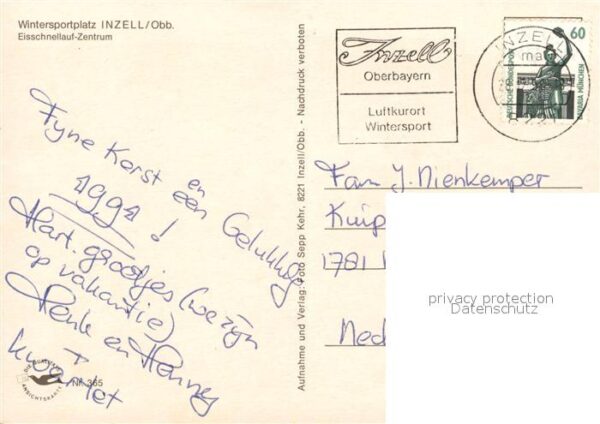 Wintersportplatz INZELL/Obb.
Eisschnellauf-Zentrum
Fyne Kerst en
een Gelukkig
1991!
Hart. groetjes (we zijn
op vakantie)
Henk en Henney
Nr. 365
Aufnahme und Verlag: Foto Sepp Kehr, 8221 Inzell/Obb. - Nachdruck verboten
Inzell
Oberbayern
Luftkurort
Wintersport
INZELL
60
DEUTSCHE BUNDESPOST
BAVARIA MÜNCHEN
Fam J. Nienkemper
Kuip
1781
Ned
privacy protection
Datenschutz